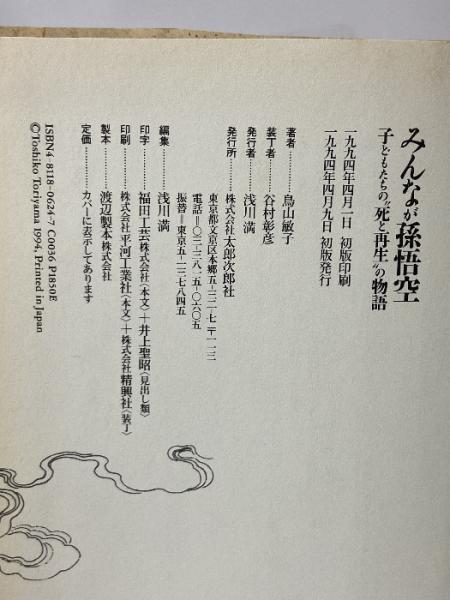 みんなが孫悟空
子どもたちの“死と再生”の物語
一九九四年四月一日 初版印刷
一九九四年四月九日 初版発行
著者………鳥山敏子
装丁者………谷村彰彦
発行者………浅川 満
発行所………株式会社太郎次郎社
東京都文京区本郷五—三二—七 〒一一三
電話=〇三—三八一五—〇六〇五
振替=東京五—一三七八四五
編集………浅川 満
印字………福田工芸株式会社(本文)+井上聖昭(見出し類)
印刷………株式会社平河工業社(本文)+株式会社精興社(装丁)
製本………渡辺製本株式会社
定価………カバーに表示してあります
ISBN4-8118-0624-7 C0036 P1850E
©Toshiko Toriyama 1994, Printed in Japan